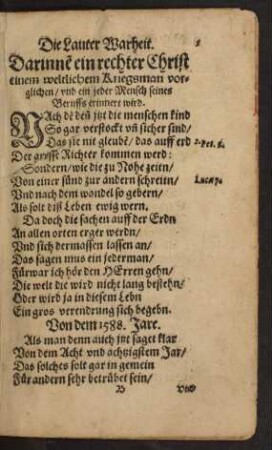 Die Lauter Warheit.
Darinnē ein rechter Christ
einem weltlichem Kriegsman vor-
glichen/ vnd ein jeder Mensch seines
Beruffs erinnert wird.
NAch dē deñ jtzt die menschen kind
So gar verstockt vñ sicher sind/
Das sie nit gleubē/ das auff erd
2. Pet. 3.
Der grosse Richter kommen werd:
Sondern/ wie die zu Nohe zeiten/
Von einer sünd zur andern schreitn/
Luc. 17.
Vnd nach dem wandel so gebern/
Als solt diß Leben ewig wern.
Da doch die sachen auff der Erdn
An allen orten erger werdn/
Vnd sich dermassen lassen an/
Das sagen mus ein jederman/
Fürwar ich hör den HErren gehn/
Die welt die wird nicht lang bestehn/
Oder wird ja in diesem Lebn
Ein gros verendrung sich begebn.
Von dem 1588. Jare.
Als man denn auch jtzt saget klar
Von dem Acht vnd achtzigstem Jar/
Das solches solt gar in gemein
Für andern sehr betrübet sein/
B
Vnd